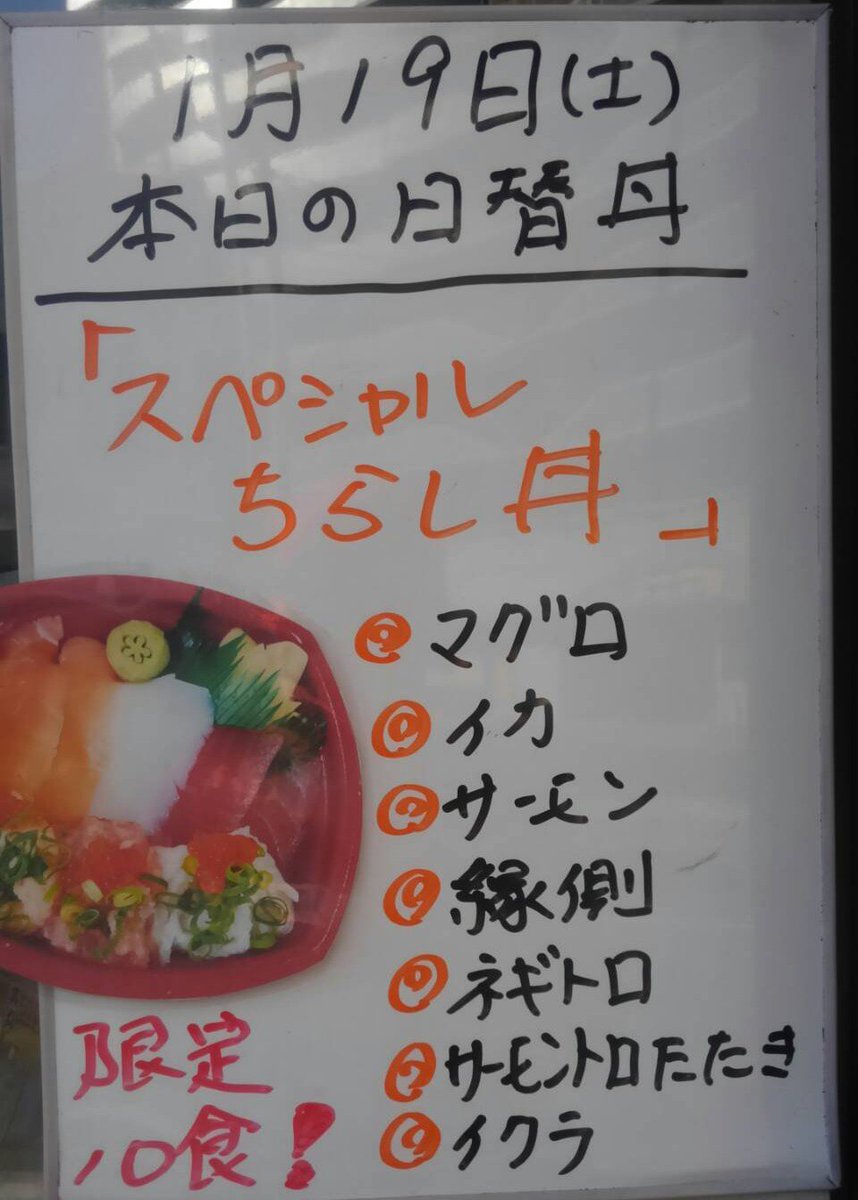 1月19日(土)
本日の日替丼
「スペシャル
ちらし丼」
マグロ
イカ
サーモン
縁側
ネギトロ
サーモントロたたき
イクラ
限定
10食!